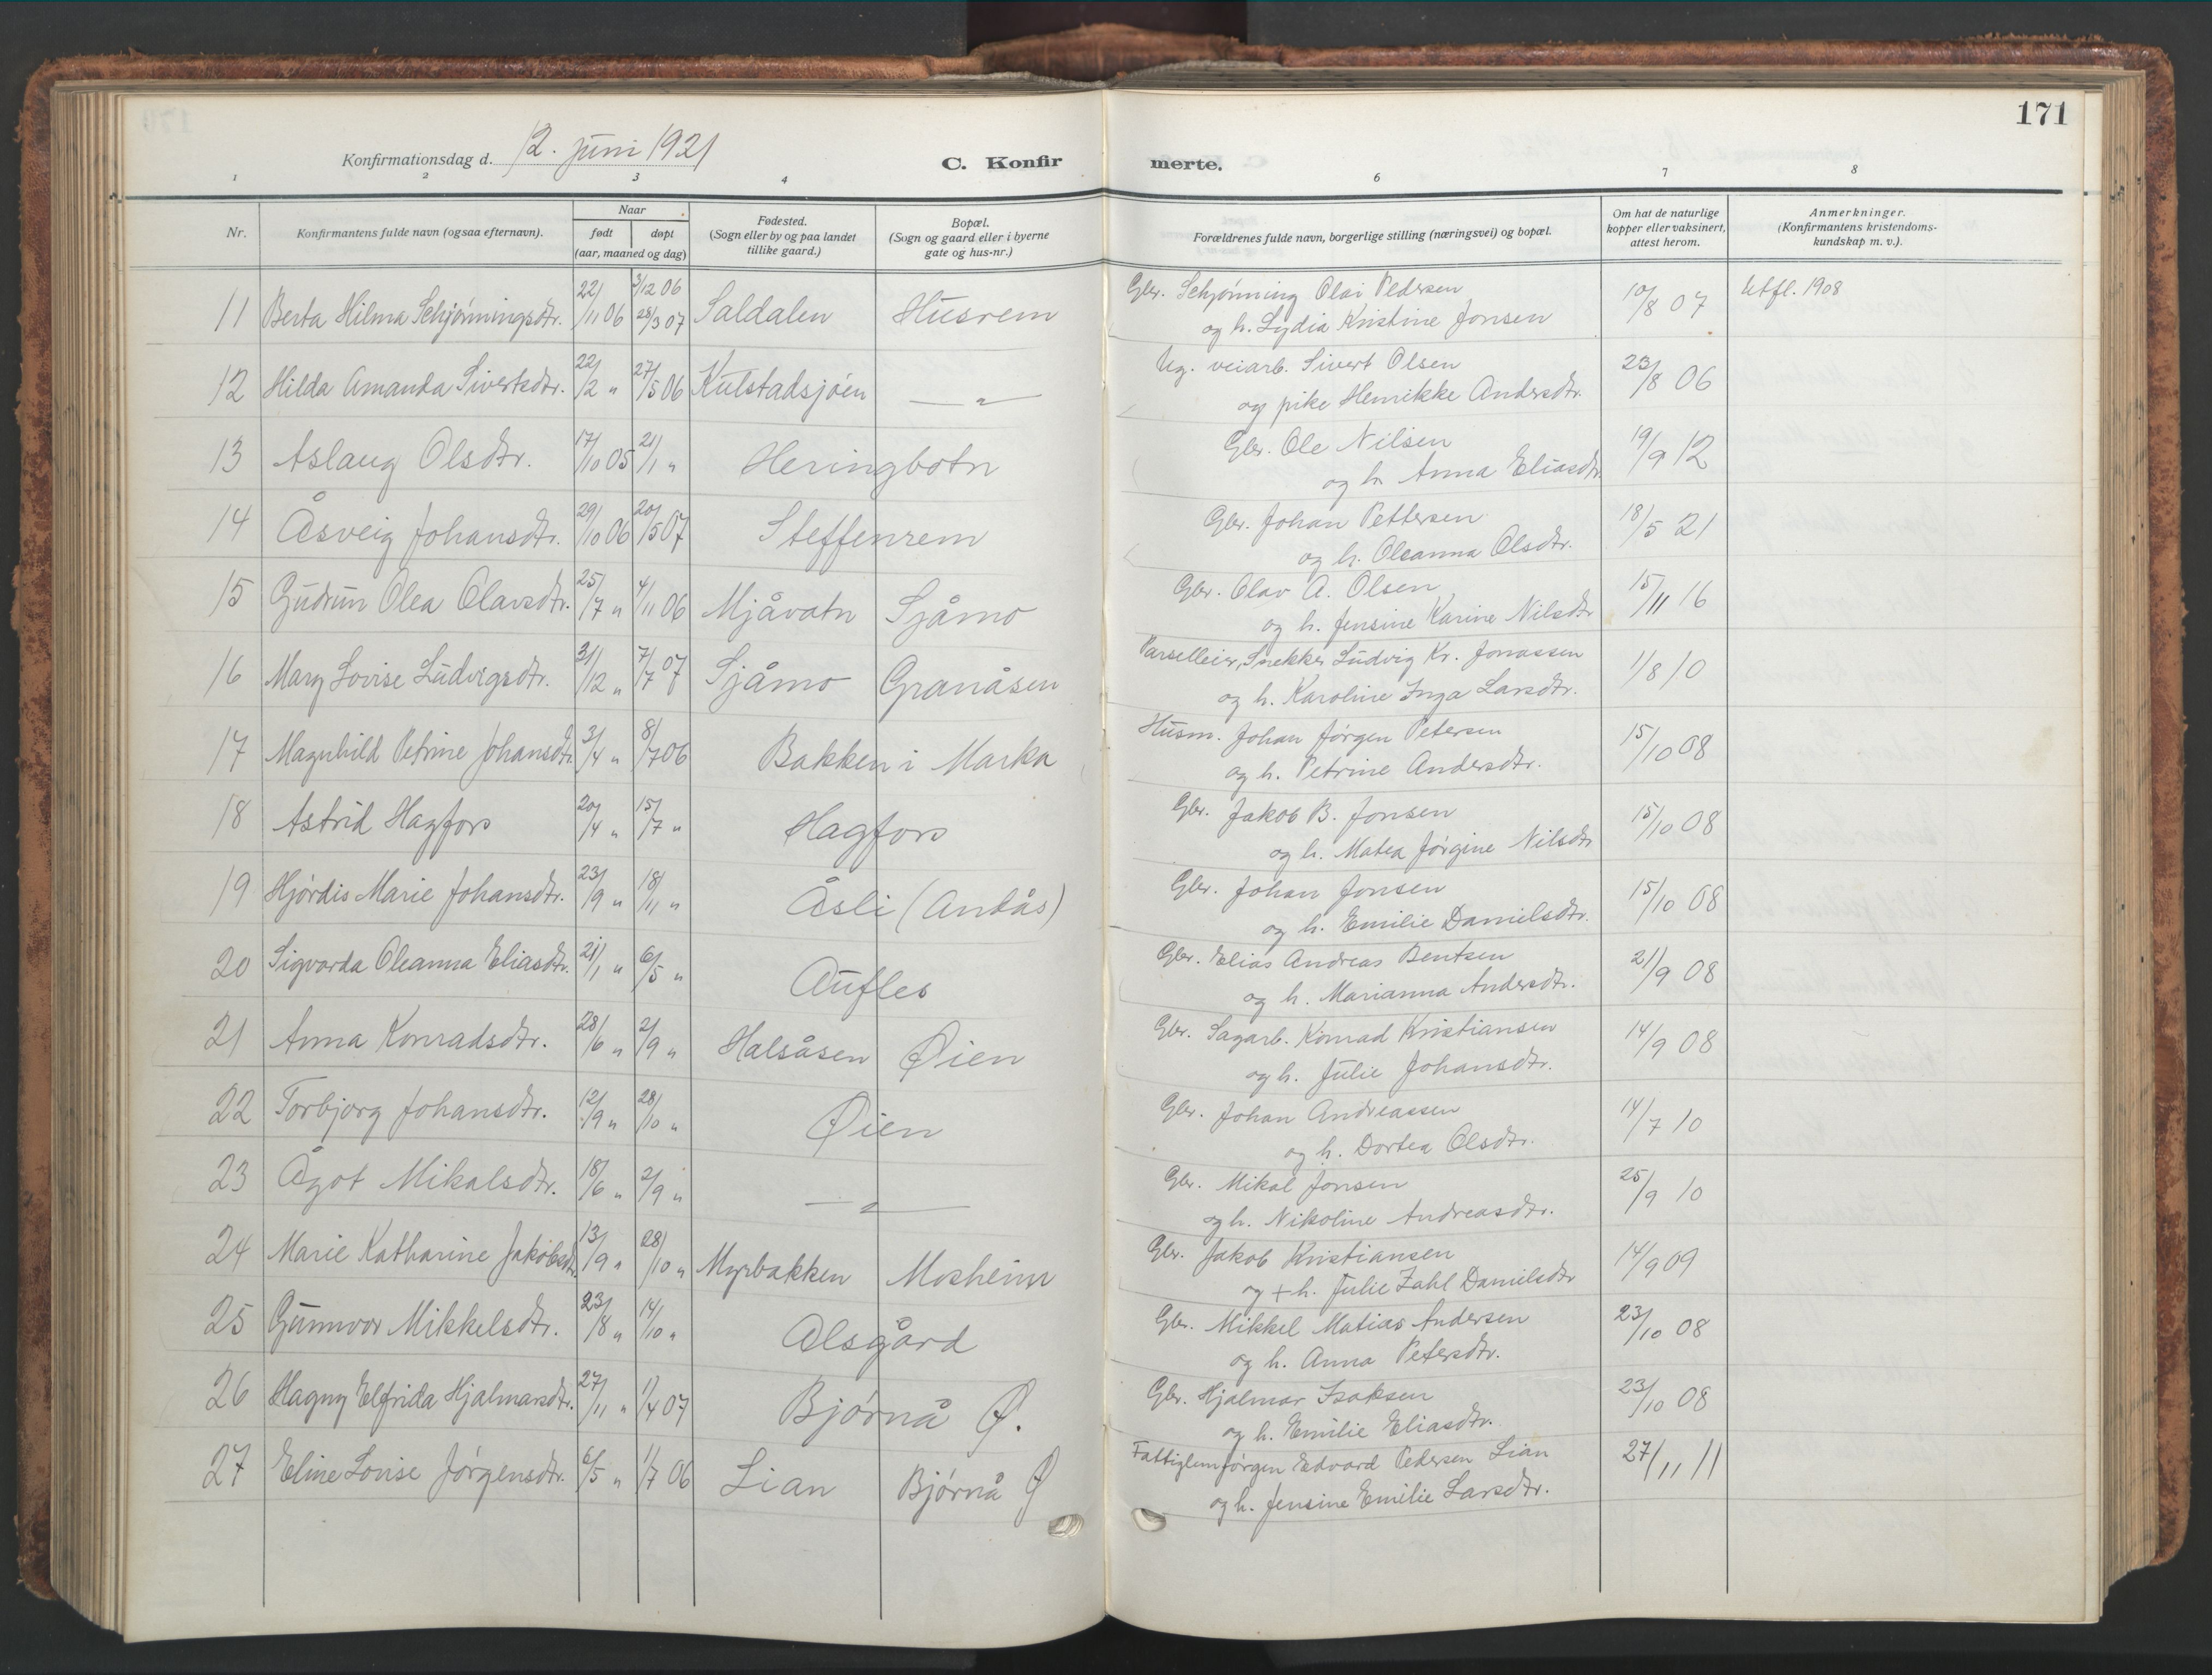 171
Konfirmationsdag d. 12. juni 1921
C. Konfirmerte.
1 2 3 4 6 7 8
Nr. Konfirmantens fulde navn (ogsaa efternavn). Naar født døpt (aar, maaned og dag) Fødested. (Sogn eller by og paa landet tillike gaard.) Bopæl. (Sogn og gaard eller i byerne gate og hus-nr.) Forældrenes fulde navn, borgerlige stilling (næringsvei) og bopæl. Om hat de naturlige kopper eller vaksinert, attest herom. Anmerkninger. (Konfirmantens kristendoms-kundskap m. v.).
11 Berta Hilma Schjønningsdtr. 22/11 06 3/12 06 28/3 07 Saldalen Husrem Gbr. Schjønning Olai Pedersen 10/8 07 Utfl. 1908
og h. Lydia Kristine Jonsen
12 Hilda Amanda Sivertsdtr. 22/2 " 27/5 06 Kulstadsjøen — " — Ug. veiarb. Sivert Olsen 23/8 06
og pike Henrikke Andersdtr.
13 Aslaug Olsdtr. 17/10 05 21/1 " Heringbotn Gbr. Ole Nilsen 19/9 12
og h. Anna Eliasdtr.
14 Åsveig Johansdtr. 29/10 06 20/5 07 Steffenrem Gbr. Johan Pettersen 18/5 21
og h. Oleanna Olsdtr.
15 Gudrun Olea Olavsdtr. 25/7 " 4/11 06 Mjåvatn Sjåmo Gbr. Olav A. Olsen 15/11 16
og h. Jensine Karine Nilsdtr
16 Mary Lovise Ludvigsdtr. 31/12 " 7/7 07 Sjåmo Granåsen Parselleier, Snekker Ludvig Kr. Jonassen 1/8 10
og h. Karoline Inga Larsdtr.
17 Magnhild Petrine Johansdtr. 3/4 " 8/7 06 Bakken i Marka Husm. Johan Jørgen Petersen 15/10 08
og h. Petrine Andersdtr.
18 Astrid Hagfors 20/4 " 15/7 " Hagfors Gbr. Jakob B. Jonsen 15/10 08
og h. Matea Jørgine Nilsdtr
19 Hjørdis Marie Johansdtr. 23/9 " 18/11 " Åsli (Andås) Gbr. Johan Jonsen 15/10 08
og h. Emilie Danielsdtr.
20 Sigvarda Oleanna Eliasdtr. 21/1 " 6/5 " Aufles Gbr. Elias Andreas Bentsen 21/9 08
og h. Marianna Andersdtr.
21 Anna Konradsdtr. 28/6 " 2/9 " Halsåsen Øien Gbr. Sagarb. Konrad Kristiansen 14/9 08
og h. Julie Johansdtr.
22 Torbjorg Johansdtr. 12/9 " 28/10 " Øien Gbr. Johan Andreassen 14/7 10
og h. Dortea Olsdtr.
23 Ågot Mikalsdtr. 18/6 " 2/9 " — " — Gbr. Mikal Jonsen 25/9 10
og h. Nikoline Andreasdtr.
24 Marie Katharine Jakobsdtr. 13/9 " 28/10 " Myrbakken Mosheim Gbr. Jakob Kristiansen 14/9 09
og + h. Julie Zahl Danielsdtr
25 Gunnvor Mikkelsdtr. 23/8 " 14/10 " Alsgård Gbr. Mikkel Matias Andersen 23/10 08
og h. Anna Petersdtr.
26 Hagny Elfrida Hjalmarsdtr. 27/11 " 1/4 07 Bjørnå Ø. Gbr. Hjalmar Isaksen 23/10 08
og h. Emilie Eliasdtr.
27 Eline Lovise Jørgensdtr. 6/5 " 1/7 06 Lian Bjørnå Ø Fattiglem Jørgen Edvard Pedersen Lian 27/11 11
og h. Jensine Emilie Larsdtr.